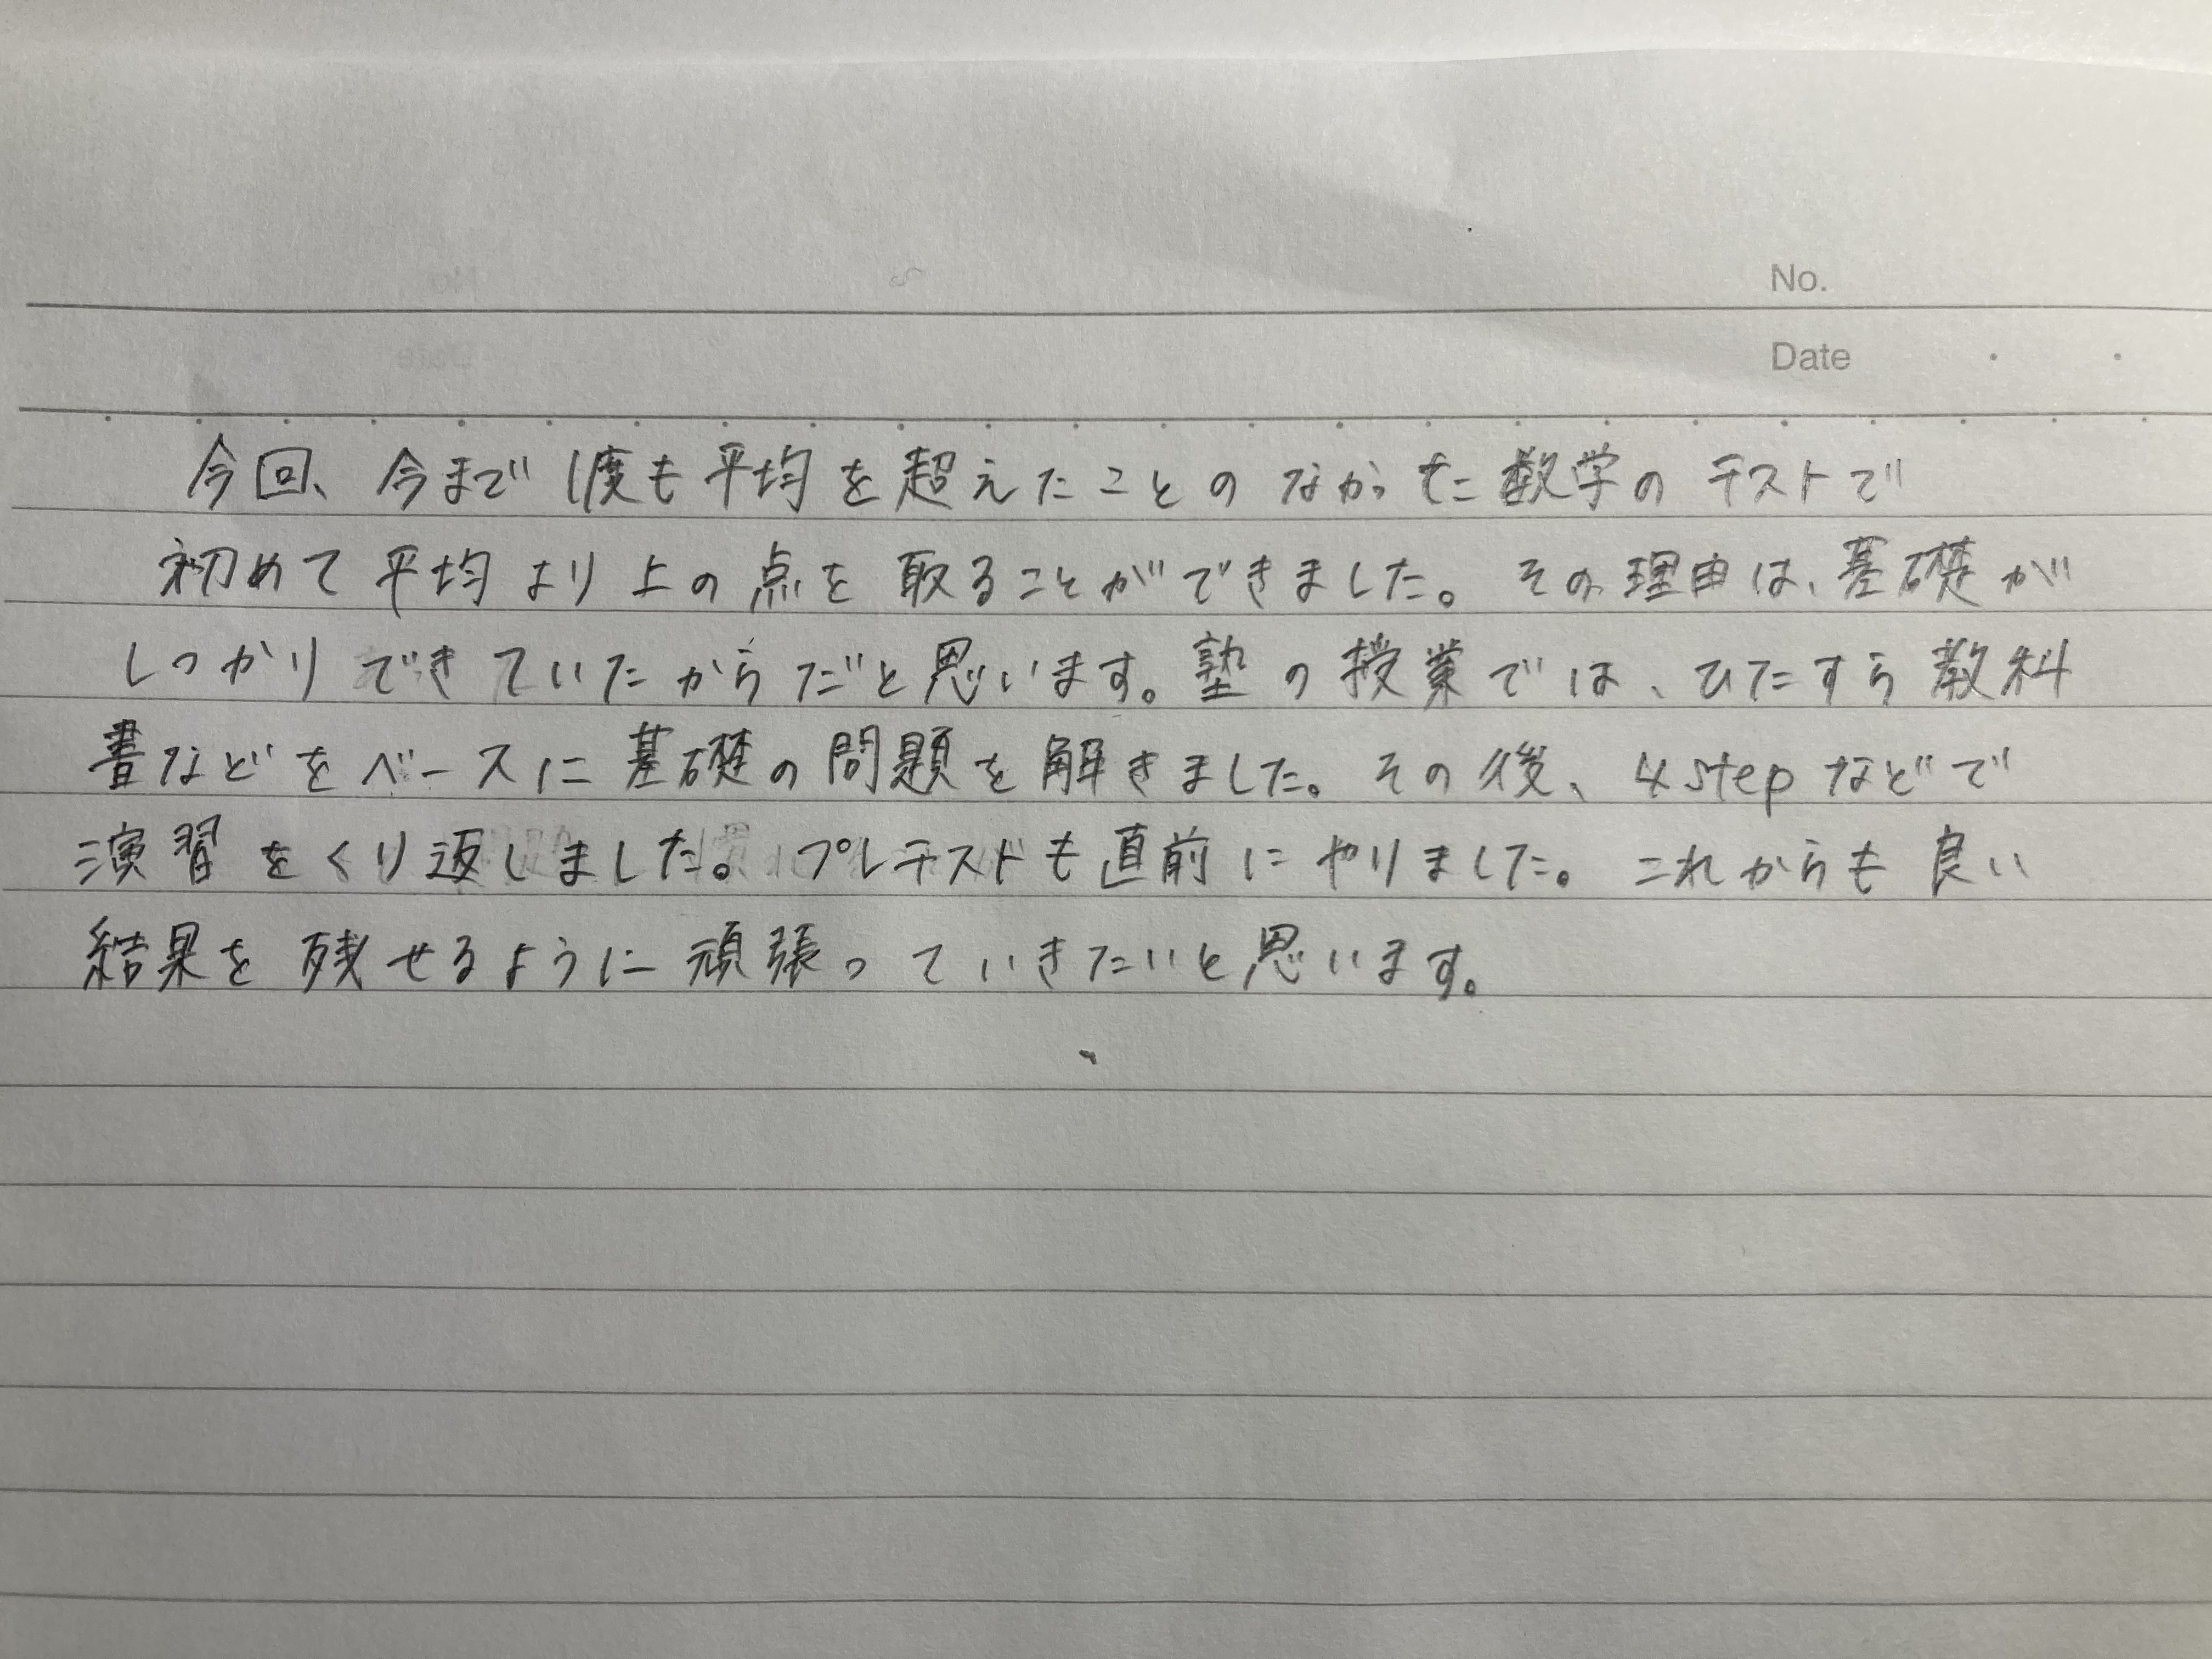 No.
Date
今回、今まで1度も平均を超えたことのなかった数学のテストで
初めて平均より上の点を取ることができました。その理由は、基礎が
しっかりできていたからだと思います。塾の授業では、ひたすら教科
書などをベースに基礎の問題を解きました。その後、4stepなどで
演習をくり返しました。プレテストも直前にやりました。これからも良い
結果を残せるように頑張っていきたいと思います。